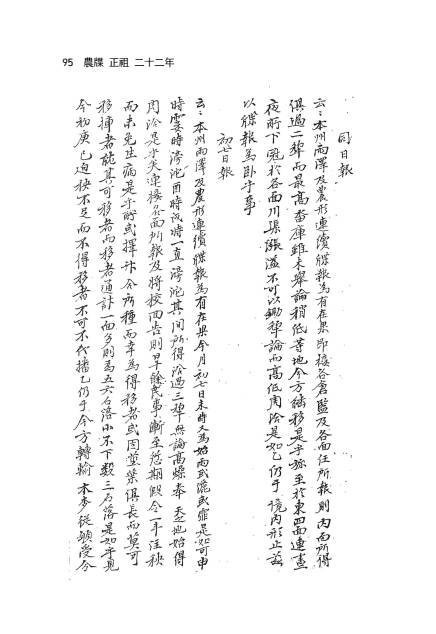 95 農牒 正祖 二十二年
同日報
云云本州雨澤及農形連續牒報爲有在果卽接各倉監及各面任所報則內面所得
俱過二犂而最高畓庫雖未擧論稍低等地今方移是乎於至於東四面連晝
夜所下觀於各面川渠漲溢不可以鋤犂論而高低周洽是如乙仍于境內形止茲
以牒報爲臥乎事
初七日報
云云本州雨澤及農形連續牒報爲有在果今月初七日未時又爲始雨或霏是如可申
時霎時滂沱酉時戌時一直滂沱其間所得洽過三犂無論高燥奉天之地始得
周洽是乎矣連接各面所報及將校回告則旱餘民事漸至愆期假令一年注秧
而未免生病是乎旀或擇今所種而幸爲得移者或因莖葉俱長而莫可
移揷者能其可移者而移者通計一面多則爲五六石落小不下數三石落是如乎見
今初庚已迫秧不足而不得移者不可不代播乙仍于今方轉輸木麥從願受今